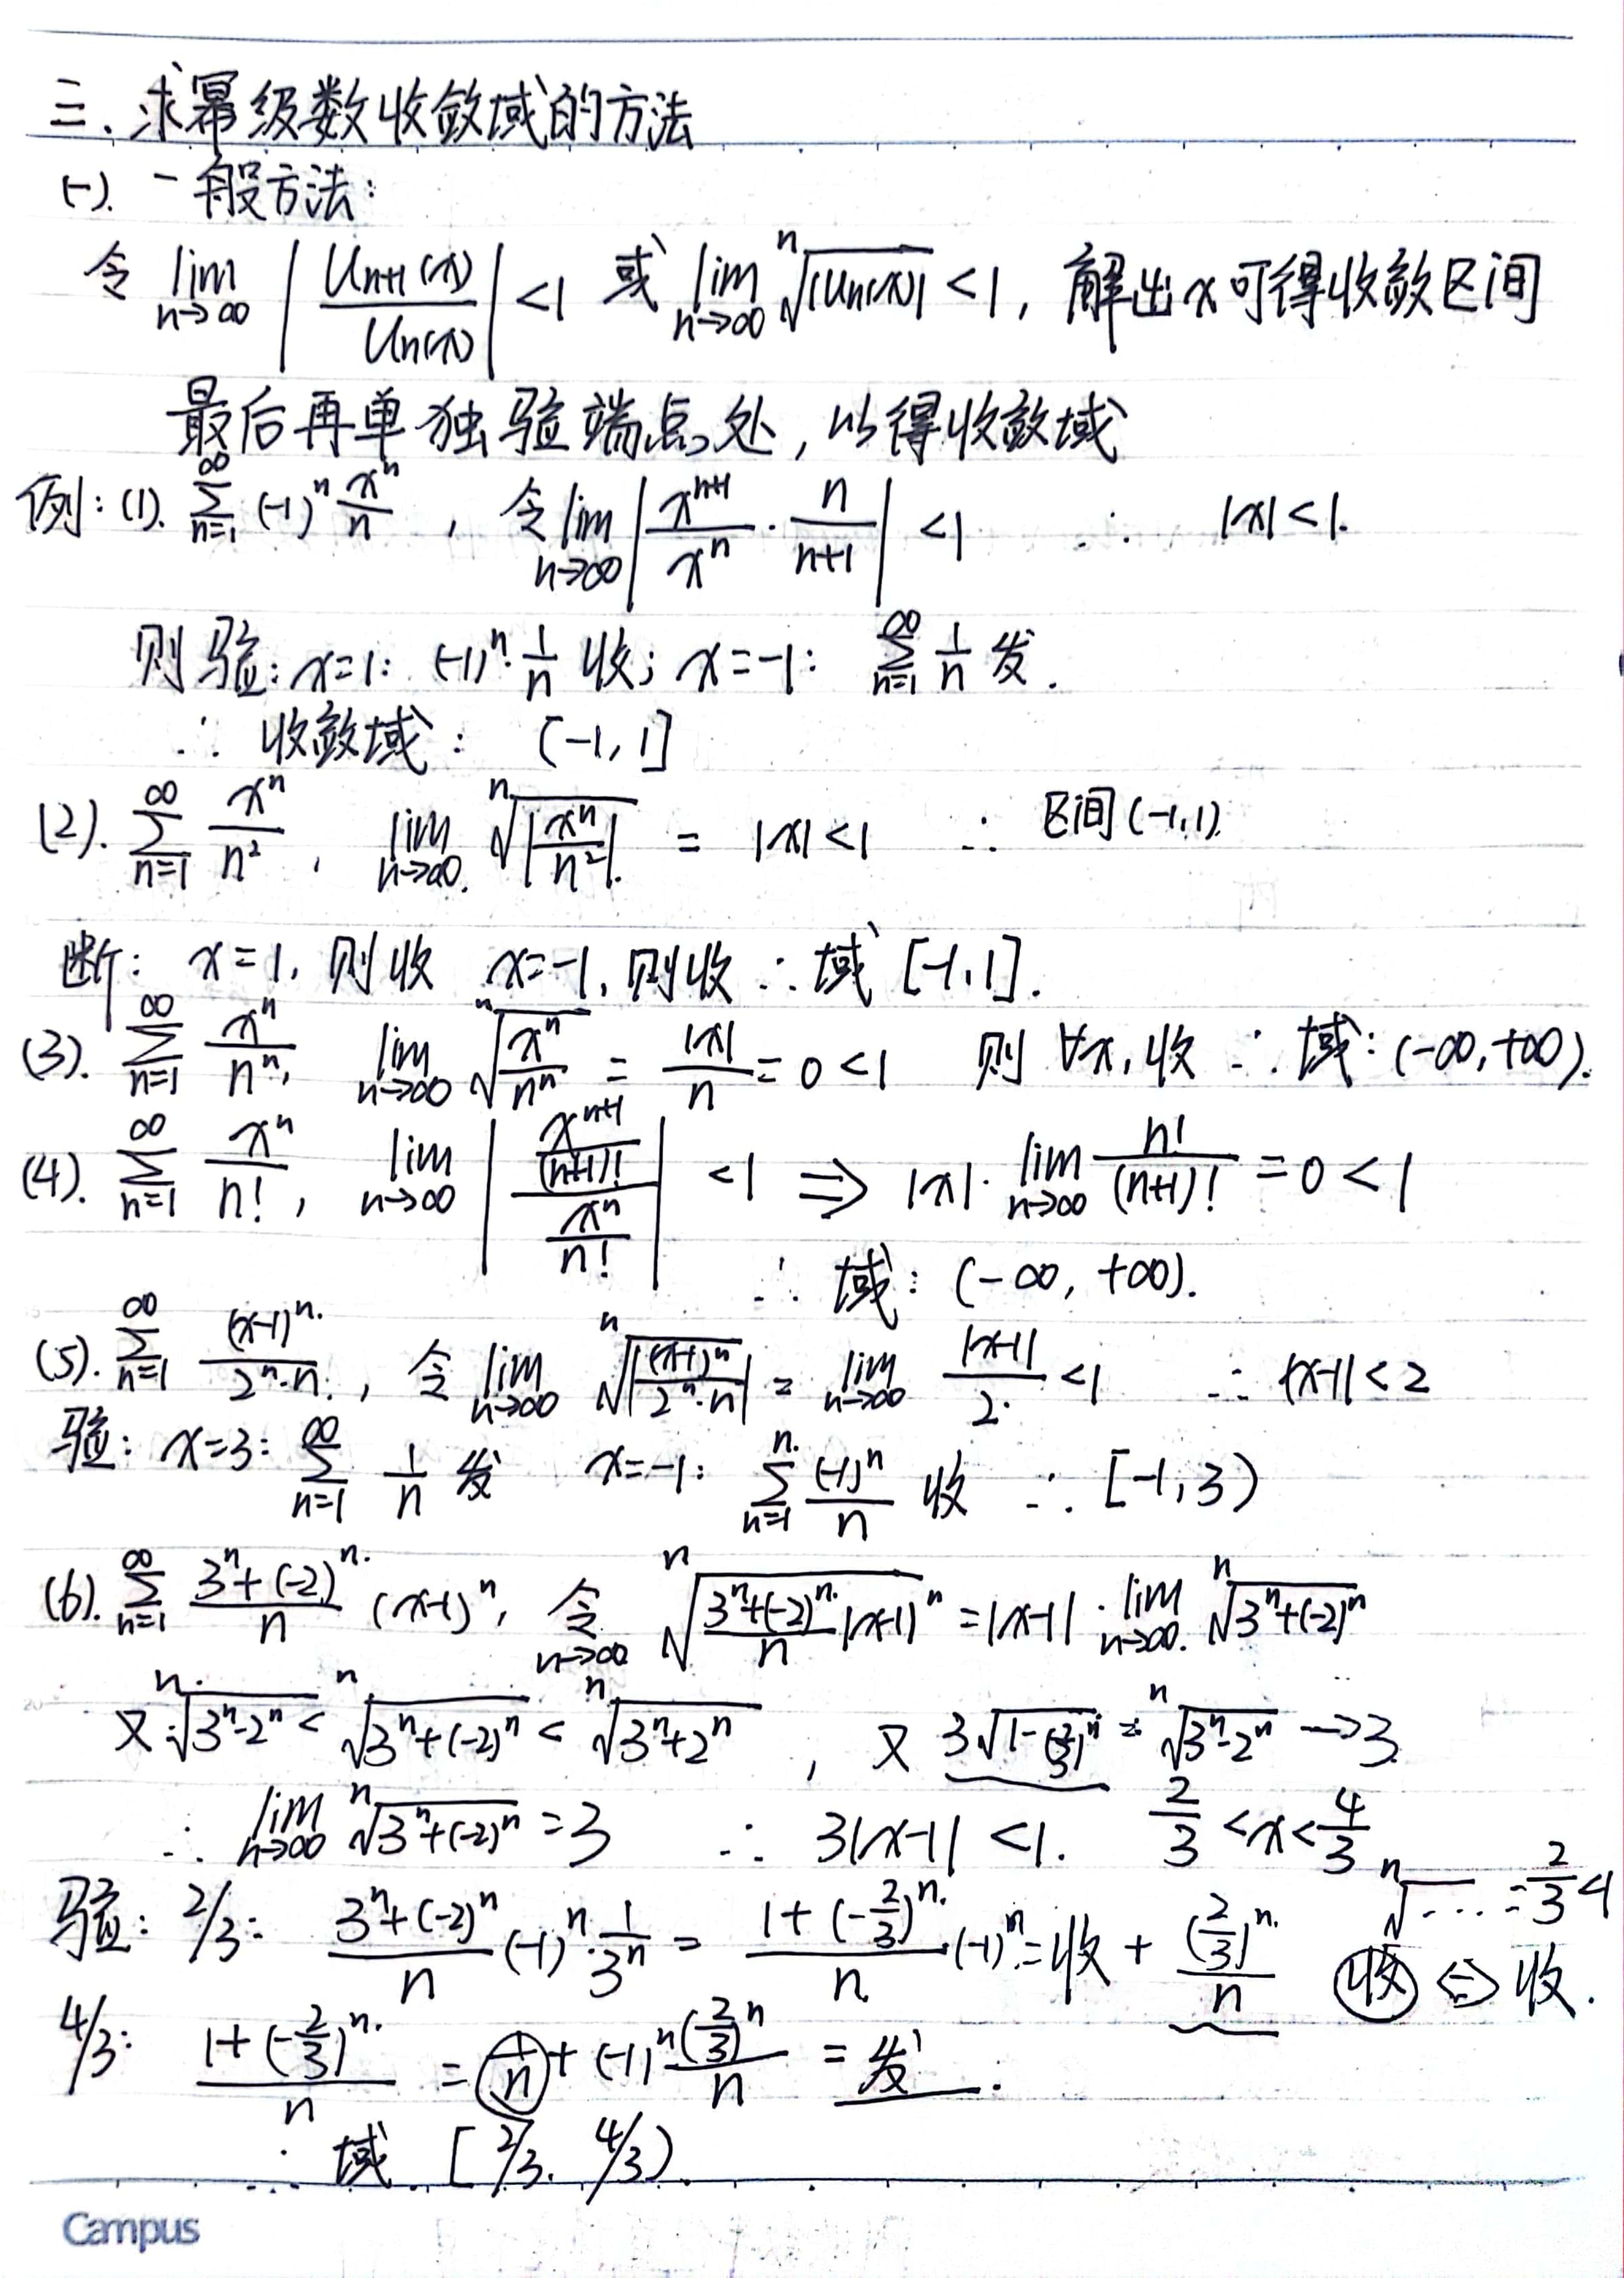 三、求幂级数收敛域的方法
(一). 一般方法:
令 lim_{n→∞} |U_{n+1}(x)/U_n(x)| <1 或 lim_{n→∞} ⁿ√|U_n(x)| <1, 解出x可得收敛区间
最后再单独验端点处,以得收敛域
例: (1). ∑_{n=1}^{∞} (-1)^n x^n/n , 令 lim_{n→∞} |x^{n+1}/x^n · n/(n+1)| <1 ∴ |x|<1.
则验: x=1: (-1)^n·1/n 收; x=-1: ∑_{n=1}^{∞} 1/n 发.
∴ 收敛域: (-1, 1]
(2). ∑_{n=1}^{∞} x^n/n², lim_{n→∞} ⁿ√|x^n/n²| = |x|<1 ∴ 区间(-1,1).
断: x=1, 则收 x=-1, 则收 ∴ 域 [-1,1].
(3). ∑_{n=1}^{∞} x^n/n^n, lim_{n→∞} ⁿ√(x^n/n^n) = |x|/n = 0<1 则 ∀x, 收 ∴ 域: (-∞,+∞).
(4). ∑_{n=1}^{∞} x^n/n!, lim_{n→∞} |(x^{n+1}/(n+1)!)/(x^n/n!)| <1 ⇒ |x|· lim_{n→∞} n!/(n+1)! = 0<1
∴ 域: (-∞, +∞).
(5). ∑_{n=1}^{∞} (x-1)^n/(2^n·n), 令 lim_{n→∞} ⁿ√|(x-1)^n/(2^n·n)| = lim_{n→∞} |x-1|/2 <1 ∴ |x-1|<2
验: x=3: ∑_{n=1}^{∞} 1/n 发 x=-1: ∑_{n=1}^{n} (-1)^n/n 收 ∴ [-1,3)
(6). ∑_{n=1}^{∞} (3^n+(-2)^n)/n (x-1)^n, 令_{n→∞} ⁿ√((3^n+(-2)^n)/n |x-1|^n) = |x-1|· lim_{n→∞} ⁿ√(3^n+(-2)^n)
又 ⁿ√(3^n-2^n) < ⁿ√(3^n+(-2)^n) < ⁿ√(3^n+2^n) , 又 3√(1-(2/3)^n) = ⁿ√(3^n-2^n) → 3
∴ lim_{n→∞} ⁿ√(3^n+(-2)^n) = 3 ∴ 3|x-1|<1. 2/3<x<4/3
验: 2/3: (3^n+(-2)^n)/n (-1)^n·1/3^n = (1+(-2/3)^n)/n·(-1)^n = 收 + (2/3)^n/n ⁿ√… = 2/3<1 收 ⇔ 收.
4/3: (1+(-2/3)^n)/n = 1/n + (-1)^n (2/3)^n/n = 发.
∴ 域 [2/3, 4/3)
Campus